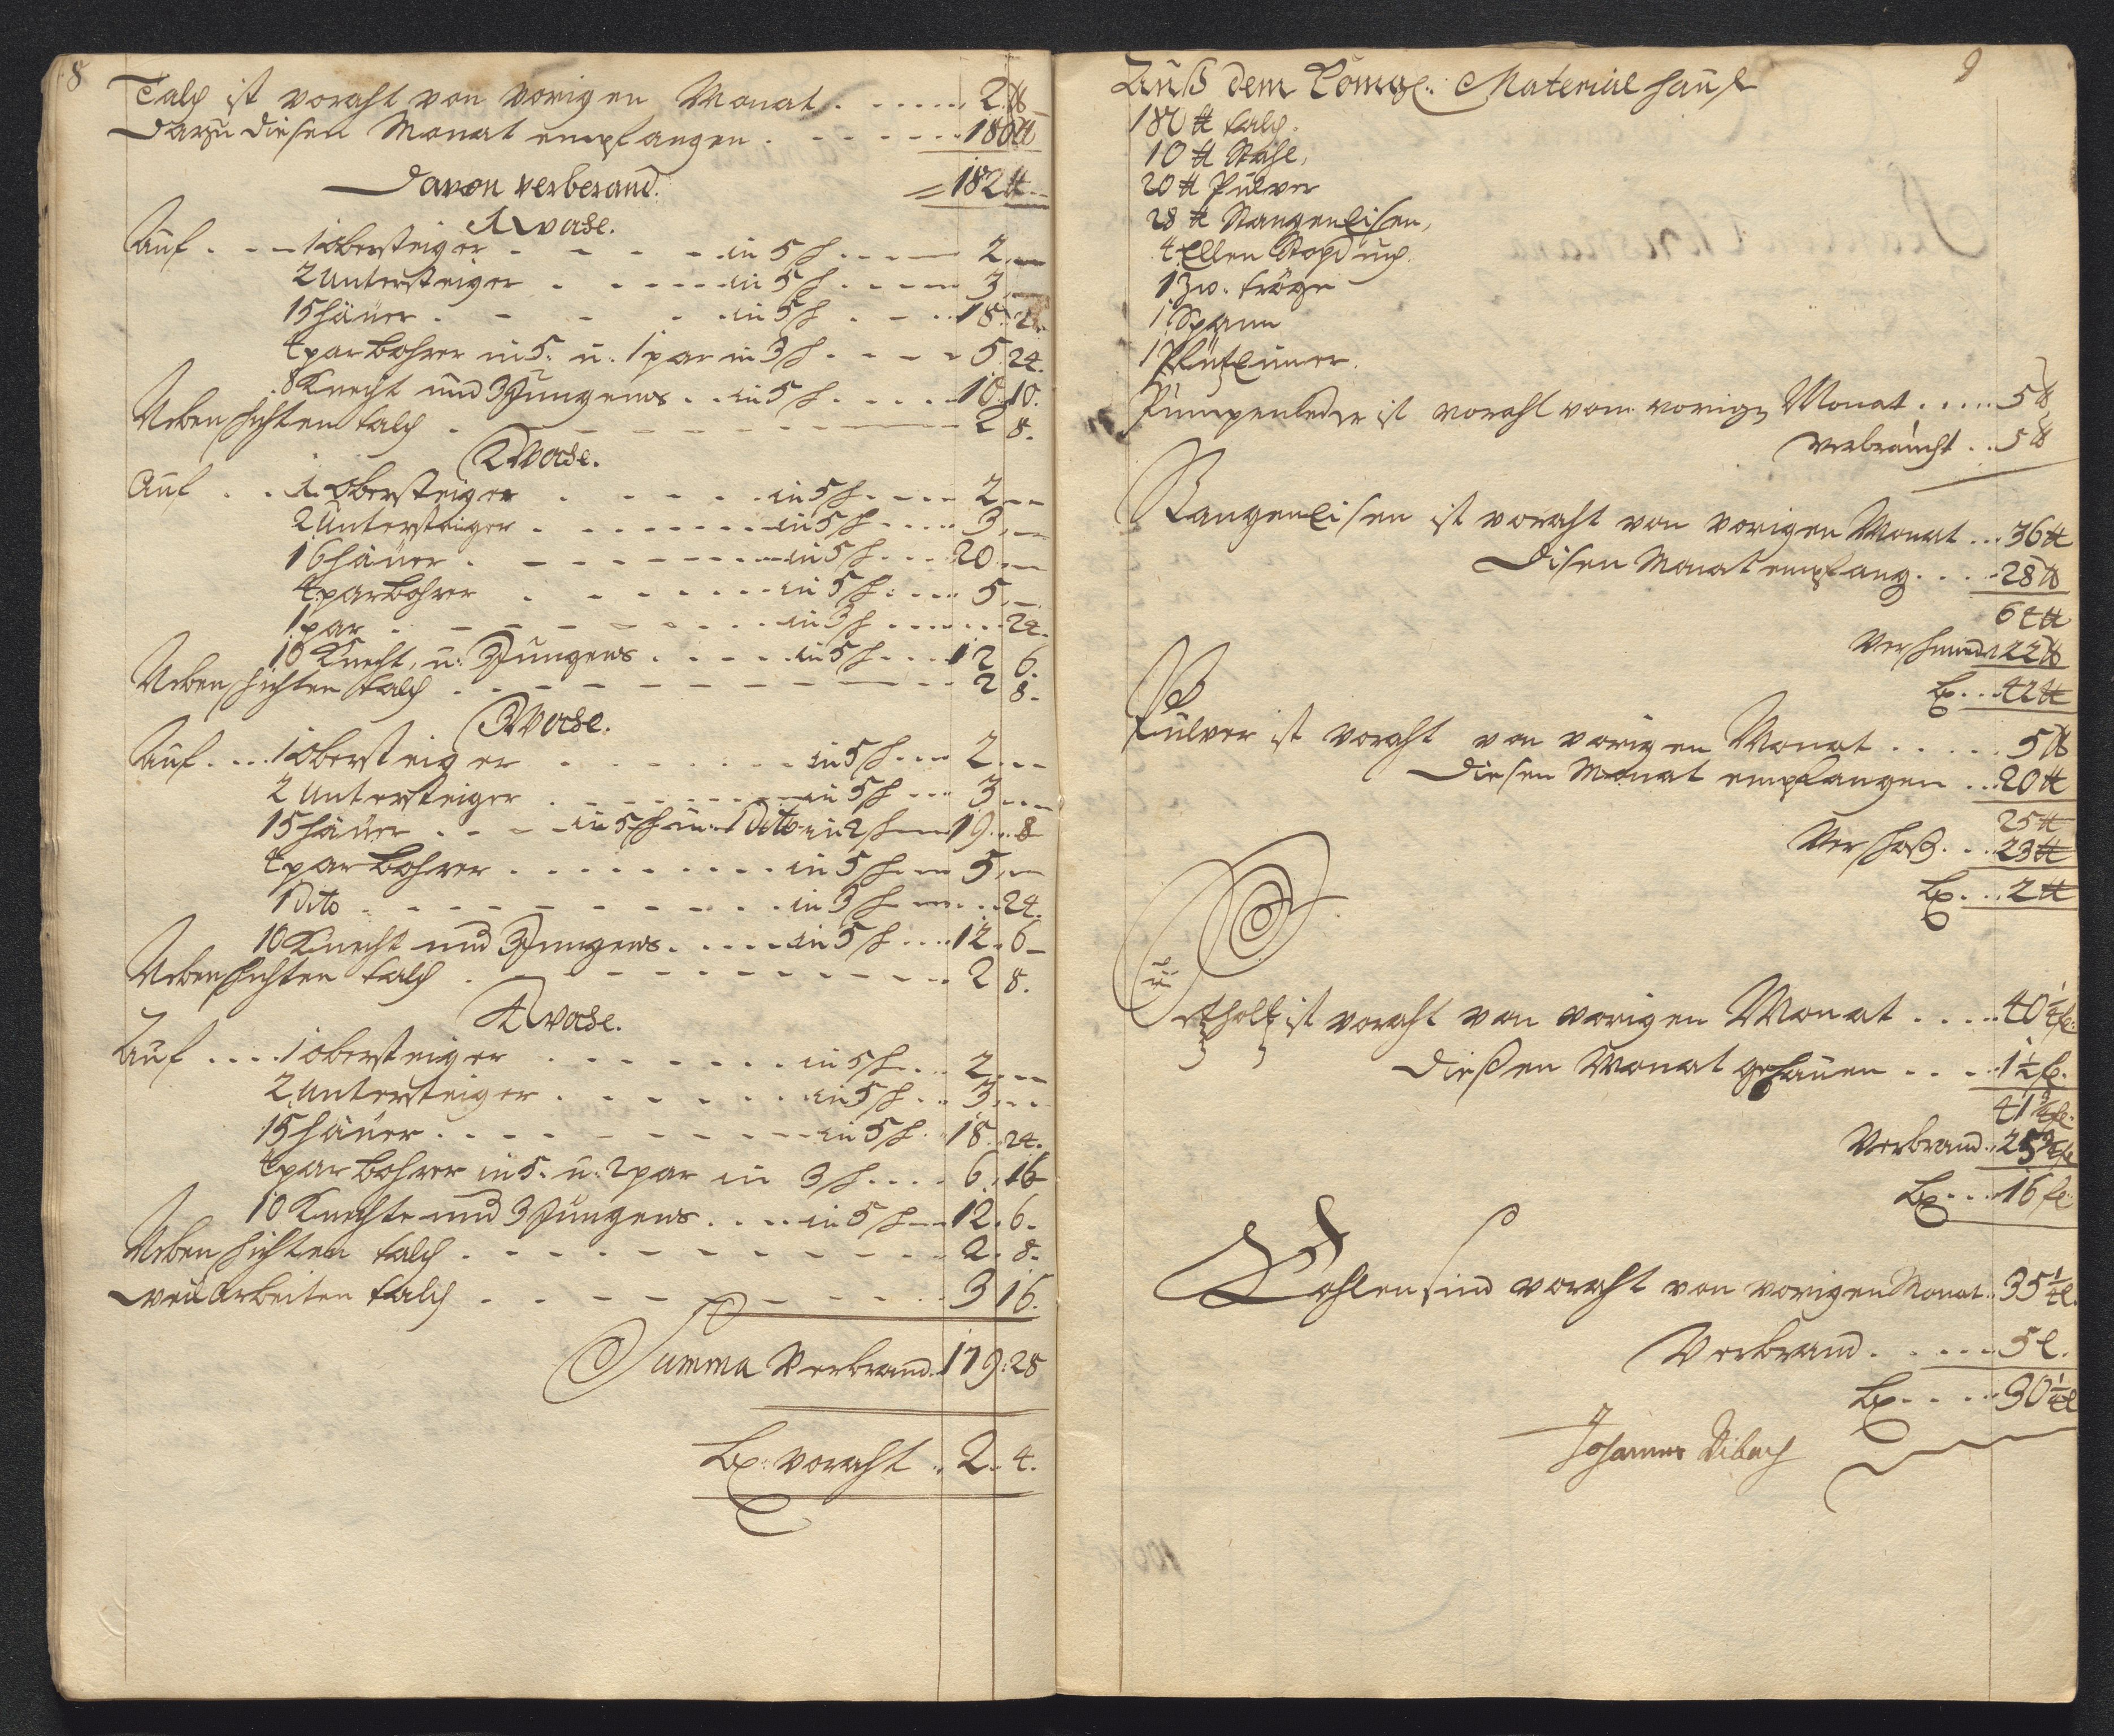 8
Talch ist voraht von Vorigen Monat . . . . . . 2 ℔
Darzu diesen Monat empfangen . . . . . . . 180 ℔
Davon verberand. = 182 ℔
1 Woche.
Auf . . . 1 obersteiger . . . . in 5 sch . . . 2 —
2 Untersteiger . . . . . in 5 sch . . . . 3 —
15 häuer . . . . . in 5 sch . . . 18 . 24
4 par bohrer in 5. u: 1 par in 3 sch . . . . 5 . 24.
8 Knecht und 3 Jungens . . in 5 sch . . . . . 10 . 10.
Neben schichten talch . . . . . . . 2 8.
2 Woche.
Auf . . 1. obersteiger . . . . . in 5 sch . . . . 2 —
2 Untersteiger . . . . . . . in 5 sch . . . . 3 —
16 häuer . . . . . . . in 5 sch . . . 20 . —
4 par bohrer . . . . . . . in 5 sch . . . . 5 . —
1 par . . . . . . . . in 3 sch . . . . . . 24.
10 Knecht, u: 3 Jungens . . . . . in 5 sch . . . 12 6.
Neben schichten talch . . . . . . . . . 2 8.
3 Woche.
Auf . . . 1 obersteiger . . . . . . . in 5 sch . . . 2 . . .
2 Untersteiger . . . . . . . in 5 sch . . . 3 . . .
15 häuer . . . in 5 sch u: 1 Dito in 2 sch . . 19 . . 8
4 par bohrer . . . . . . . . . in 5 sch . . 5 . —
1 Dito . . . . . . . . . in 3 sch . . . . . 24.
10 Knecht und 3 Jungens . . . . . in 5 sch . . . . 12 . 6 —
Neben schichten talch . . . . . . . . . . 2 8.
4 Woche.
Auf . . . . 1 obersteiger . . . . . . . in 5 sch . . . 2 . . .
2 Untersteiger . . . . . . . in 5 sch . . 3 . . .
15 häuer . . . . . . . . . in 5 sch . 18 . 24.
4 par bohrer in 5. u: 2 par in 3 sch . . . . 6 . 16
10 Knechte und 3 Jungens . . . . in 5 sch — 12 . 6.
Neben schichten talch . . . . . . . . . . . . 2 . 8.
weil arbeiten talch . . . . . . . . . . . 3 16.
Summa Verbrand. 179 : 28
voraht . . 2 . 4.
9
Auß dem Material hauß
180 ℔ talch.
10 ℔ Stahl,
20 ℔ Pulver
28 ℔ Stangen Eisen,
4 Ellen
1 Zw. tröge
1 Spann
1
Pumpenleder ist voraht vom vorign Monat . . . . . 5 ℔
verbraucht . . 5 ℔
Stangen Eisen ist voraht von vorigen Monat . . . 36 ℔
Disen Monat empfang . . . . 28 ℔
64 ℔
Verschmidt 22 ℔
. . . 42 ℔
Pulver ist voraht von vorigen Monat . . . . . 5 ℔
Diesen Monat empfangen . . . 20 ℔
25 ℔
Verschoß . . . 23 ℔
. . . 2 ℔
holtz ist voraht von vorigen Monat . . . . . 40 1/4 f.
Dießen Monat gehauen . . . . 1 1/2 f.
41 3/4 f.
Verbrand . . 25 3/4 f.
. . . . 16 f.
Kohlen sind voraht von vorigen Monat . . 35 1/4 l.
Verbrand . . . . . . 5 l.
. . . . . 30 1/4 l
Johannes